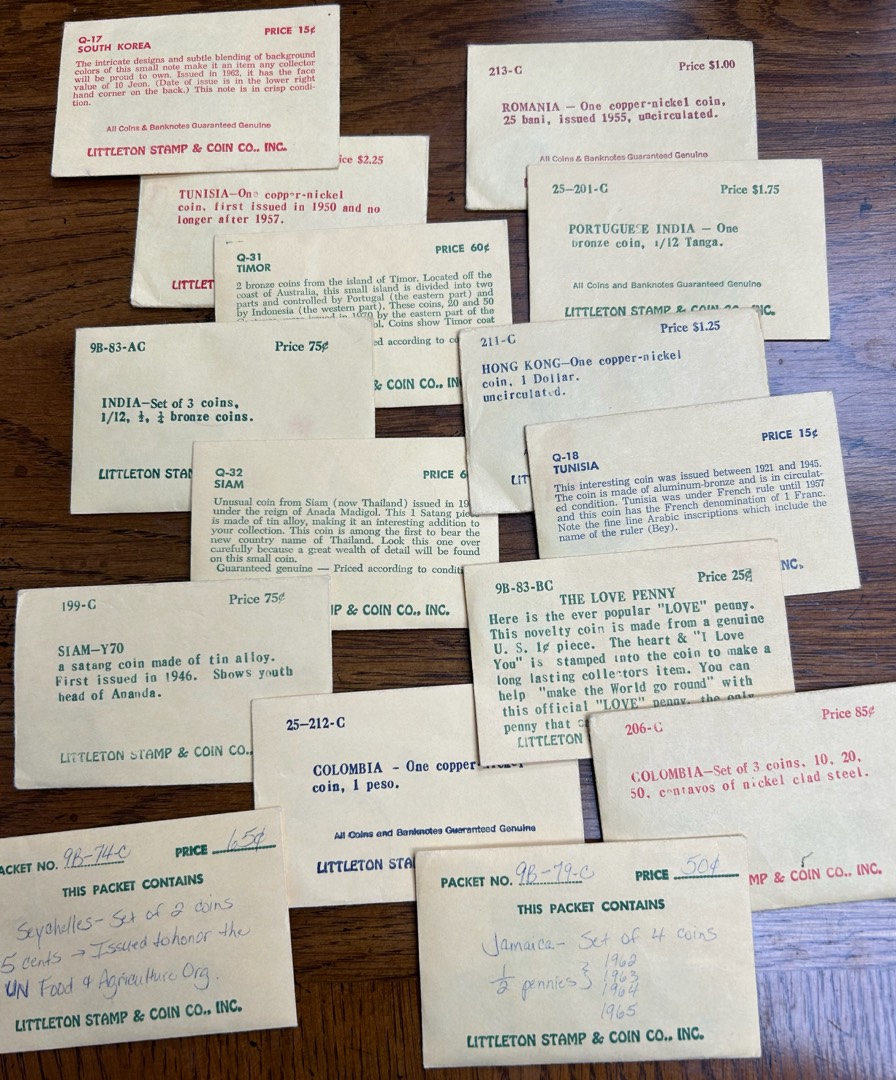 Q-17 PRICE 15¢
SOUTH KOREA
The intricate designs and subtle blending of background
colors of this small note make it an item any collector
will be proud to own. Issued in 1962, it has the face
value of 10 Jeon. (Date of issue is in the lower right
hand corner on the back.) This note is in crisp condi-
tion.
All Coins & Banknotes Guaranteed Genuine
LITTLETON STAMP & COIN CO., INC.
213-C Price $1.00
ROMANIA — One copper-nickel coin,
25 bani, issued 1955, uncirculated.
All Coins & Banknotes Guaranteed Genuine
ice $2.25
TUNISIA—One copper-nickel
coin, first issued in 1950 and no
longer after 1957.
LITTLET
25-201-C Price $1.75
PORTUGUESE INDIA — One
bronze coin, 1/12 Tanga.
All Coins and Banknotes Guaranteed Genuine
LITTLETON STAMP & COIN CO., INC.
Q-31 PRICE 60¢
TIMOR
2 bronze coins from the island of Timor. Located off the
coast of Australia, this small island is divided into two
parts and controlled by Portugal (the eastern part) and
by Indonesia (the western part). These coins, 20 and 50
issued in 1970 by the eastern part of the
ol. Coins show Timor coat
ed according to co
& COIN CO., IN
9B-83-AC Price 75¢
INDIA—Set of 3 coins,
1/12, ½, ¼ bronze coins.
LITTLETON STA
211-C Price $1.25
HONG KONG—One copper-nickel
coin, 1 Dollar.
uncirculated.
LIT
Q-32 PRICE 6
SIAM
Unusual coin from Siam (now Thailand) issued in 19
under the reign of Anada Madigol. This 1 Satang pie
is made of tin alloy, making it an interesting addition to
your collection. This coin is among the first to bear the
new country name of Thailand. Look this one over
carefully because a great wealth of detail will be found
on this small coin.
Guaranteed genuine — Priced according to condit
IP & COIN CO., INC.
Q-18 PRICE 15¢
TUNISIA
This interesting coin was issued between 1921 and 1945.
The coin is made of aluminum-bronze and is in circulat-
ed condition. Tunisia was under French rule until 1957
and this coin has the French denomination of 1 Franc.
Note the fine line Arabic inscriptions which include the
name of the ruler (Bey).
NC.
199-C Price 75¢
SIAM—Y70
a satang coin made of tin alloy.
First issued in 1946. Shows youth
head of Ananda.
LITTLETON STAMP & COIN CO.,
9B-83-BC Price 25¢
THE LOVE PENNY
Here is the ever popular "LOVE" penny.
This novelty coin is made from a genuine
U. S. 1¢ piece. The heart & "I Love
You" is stamped into the coin to make a
long lasting collectors item. You can
help "make the World go round" with
this official "LOVE" penny, the only
penny that
LITTLETON
25-212-C
COLOMBIA - One copper-nickel
coin, 1 peso.
All Coins and Banknotes Guaranteed Genuine
LITTLETON STA
206-C Price 85¢
COLOMBIA—Set of 3 coins. 10, 20,
50, centavos of nickel clad steel.
MP & COIN CO., INC.
ACKET NO. 9B-74-C PRICE 65¢
THIS PACKET CONTAINS
Seychelles - Set of 2 coins
5 cents → Issued to honor the
UN Food & Agriculture Org.
LITTLETON STAMP & COIN CO., INC.
PACKET NO. 9B-79-C PRICE 50¢
THIS PACKET CONTAINS
Jamaica - Set of 4 coins
½ pennies } 1962
1963
1964
1965
LITTLETON STAMP & COIN CO., INC.